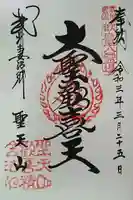 奉拝 令和三年三月二十五日
大聖歓喜天
武州妻沼郷
聖天山